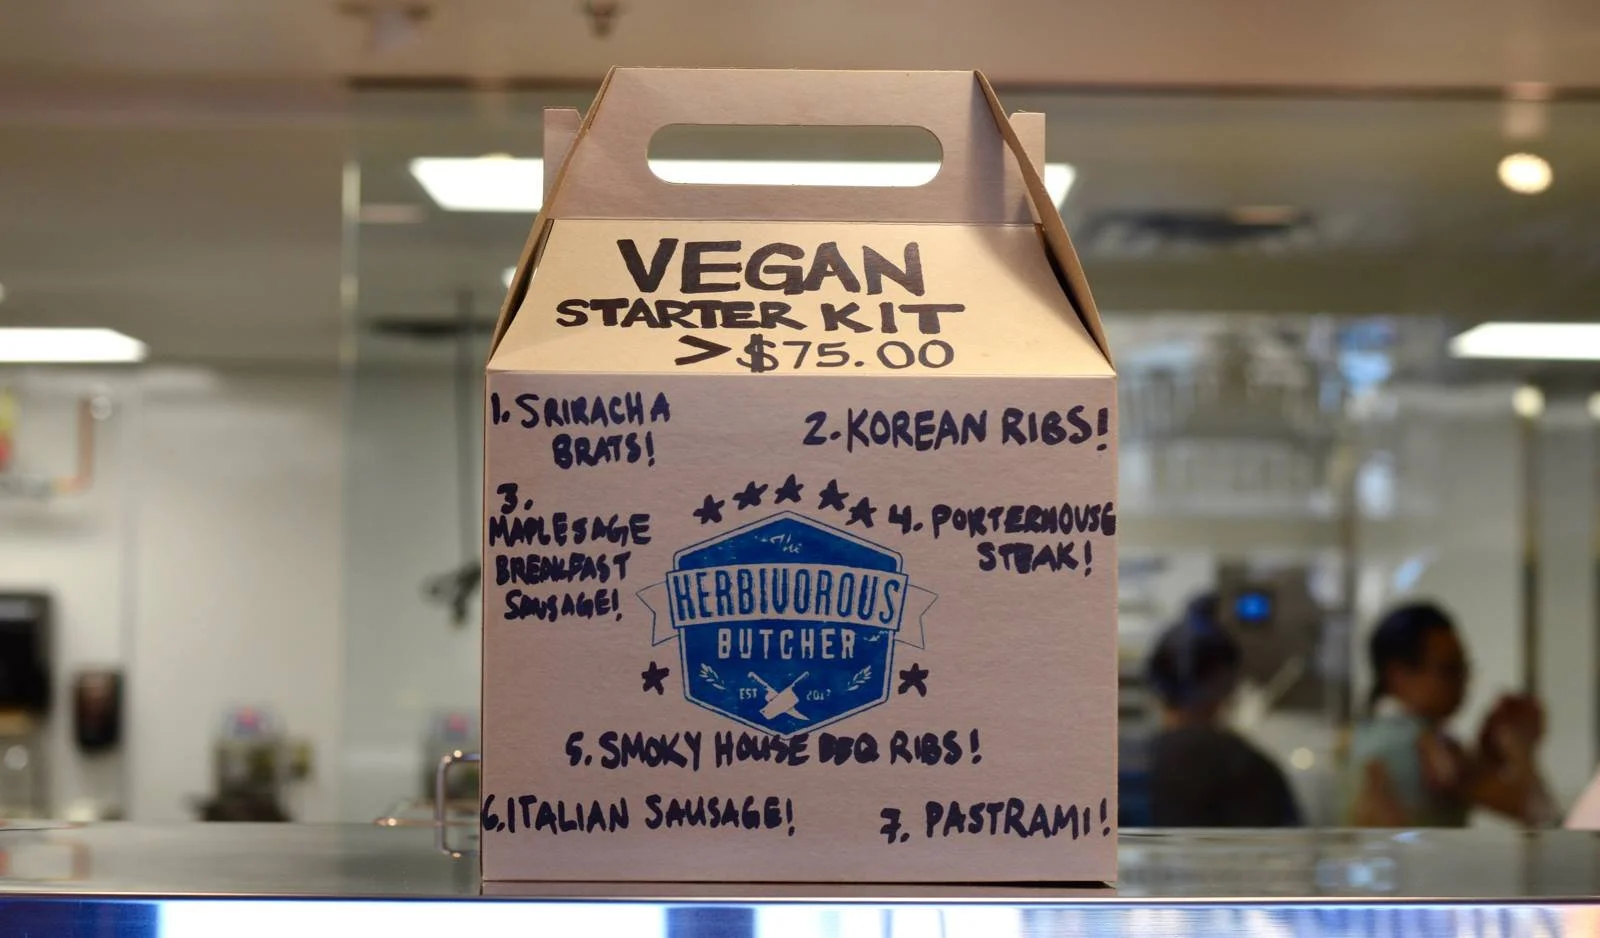 VEGAN
STARTER KIT
>$75.00
1. SRIRACHA
BRATS!
2. KOREAN RIBS!
3.
MAPLE SAGE
BREAKFAST
SAUSAGE!
4. PORTERHOUSE
STEAK!
The
HERBIVOROUS
BUTCHER
EST
5. SMOKY HOUSE BBQ RIBS!
6. ITALIAN SAUSAGE!
7. PASTRAMI!